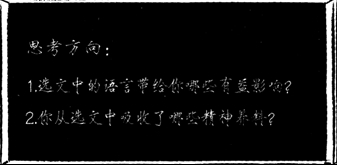 思考方向：
1.选文中的语言带给你哪些有益影响?
2.你从选文中吸收了哪些精神养料?